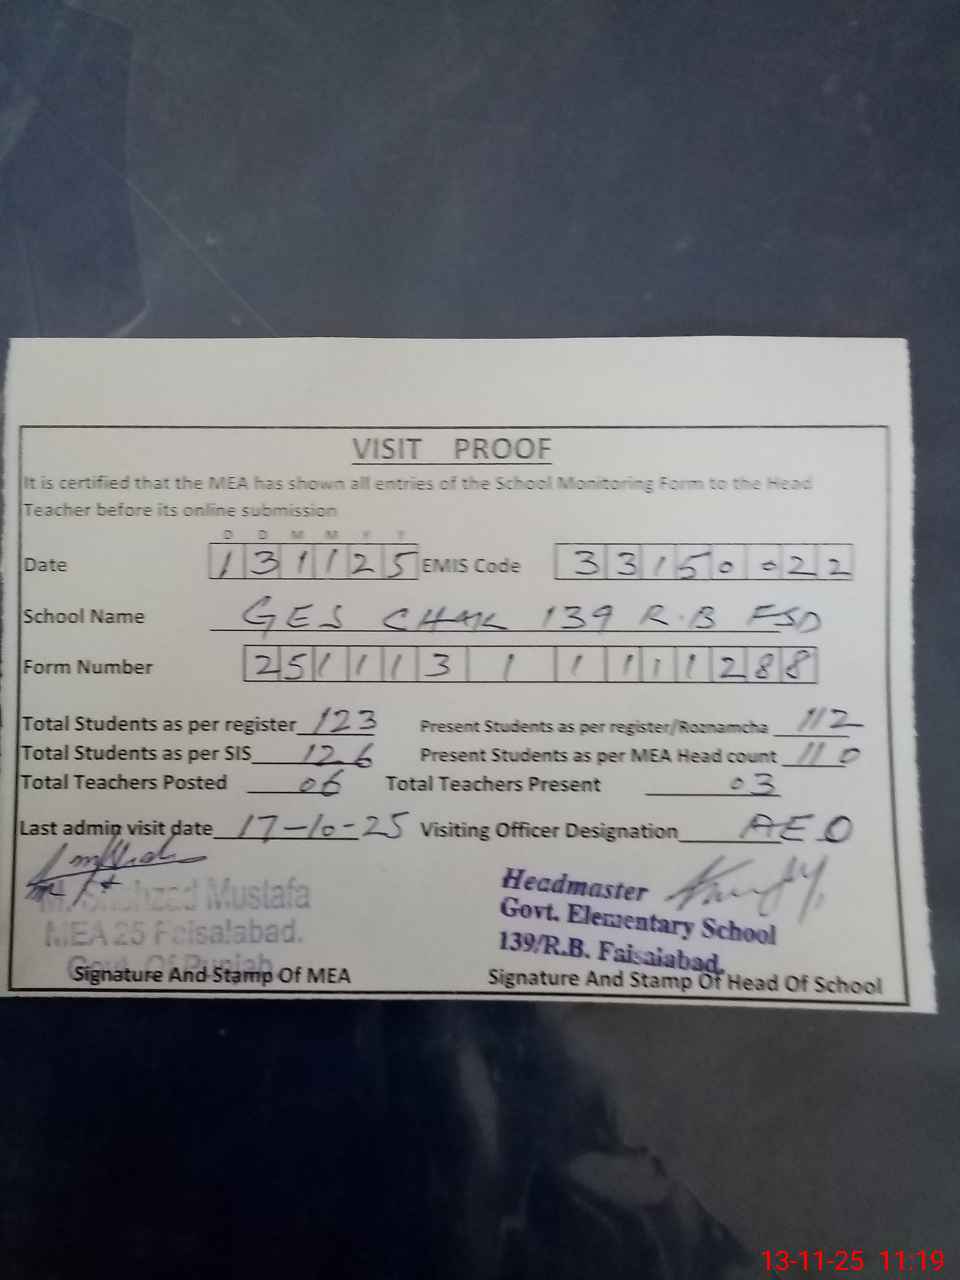 VISIT PROOF
It is certified that the MEA has shown all entries of the School Monitoring Form to the Head
Teacher before its online submission
D D M M Y Y
Date 131125 EMIS Code 33150022
School Name GES CHAK 139 R.B FSD
Form Number 25111311111288
Total Students as per register 123 Present Students as per register/Roznamcha 112
Total Students as per SIS 126 Present Students as per MEA Head count 110
Total Teachers Posted 06 Total Teachers Present 03
Last admin visit date 17-10-25 Visiting Officer Designation AEO
Mustafa
MEA 25 Faisalabad.
Govt. Of Punjab
Signature And Stamp Of MEA
Headmaster
Govt. Elementary School
139/R.B. Faisalabad.
Signature And Stamp Of Head Of School
13-11-25 11:19